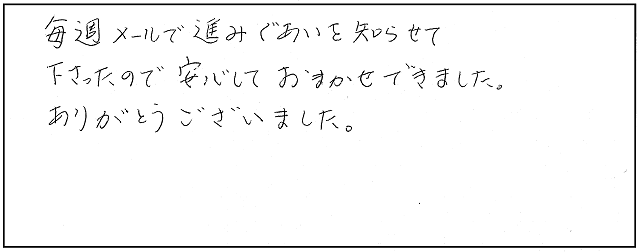 毎週メールで進みぐあいを知らせて
下さったので安心しておまかせできました。
ありがとうございました。